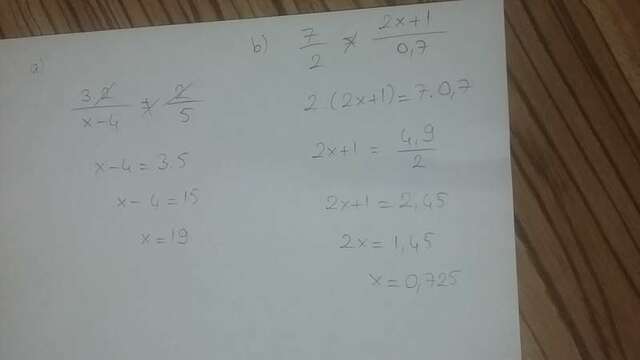 a)
3·2/x-4 × 2/5
x-4=3.5
x-4=15
x=19
b)
7/2 × 2x+1/0,7
2(2x+1)=7·0,7
2x+1 = 4,9/2
2x+1=2,45
2x=1,45
x=0,725